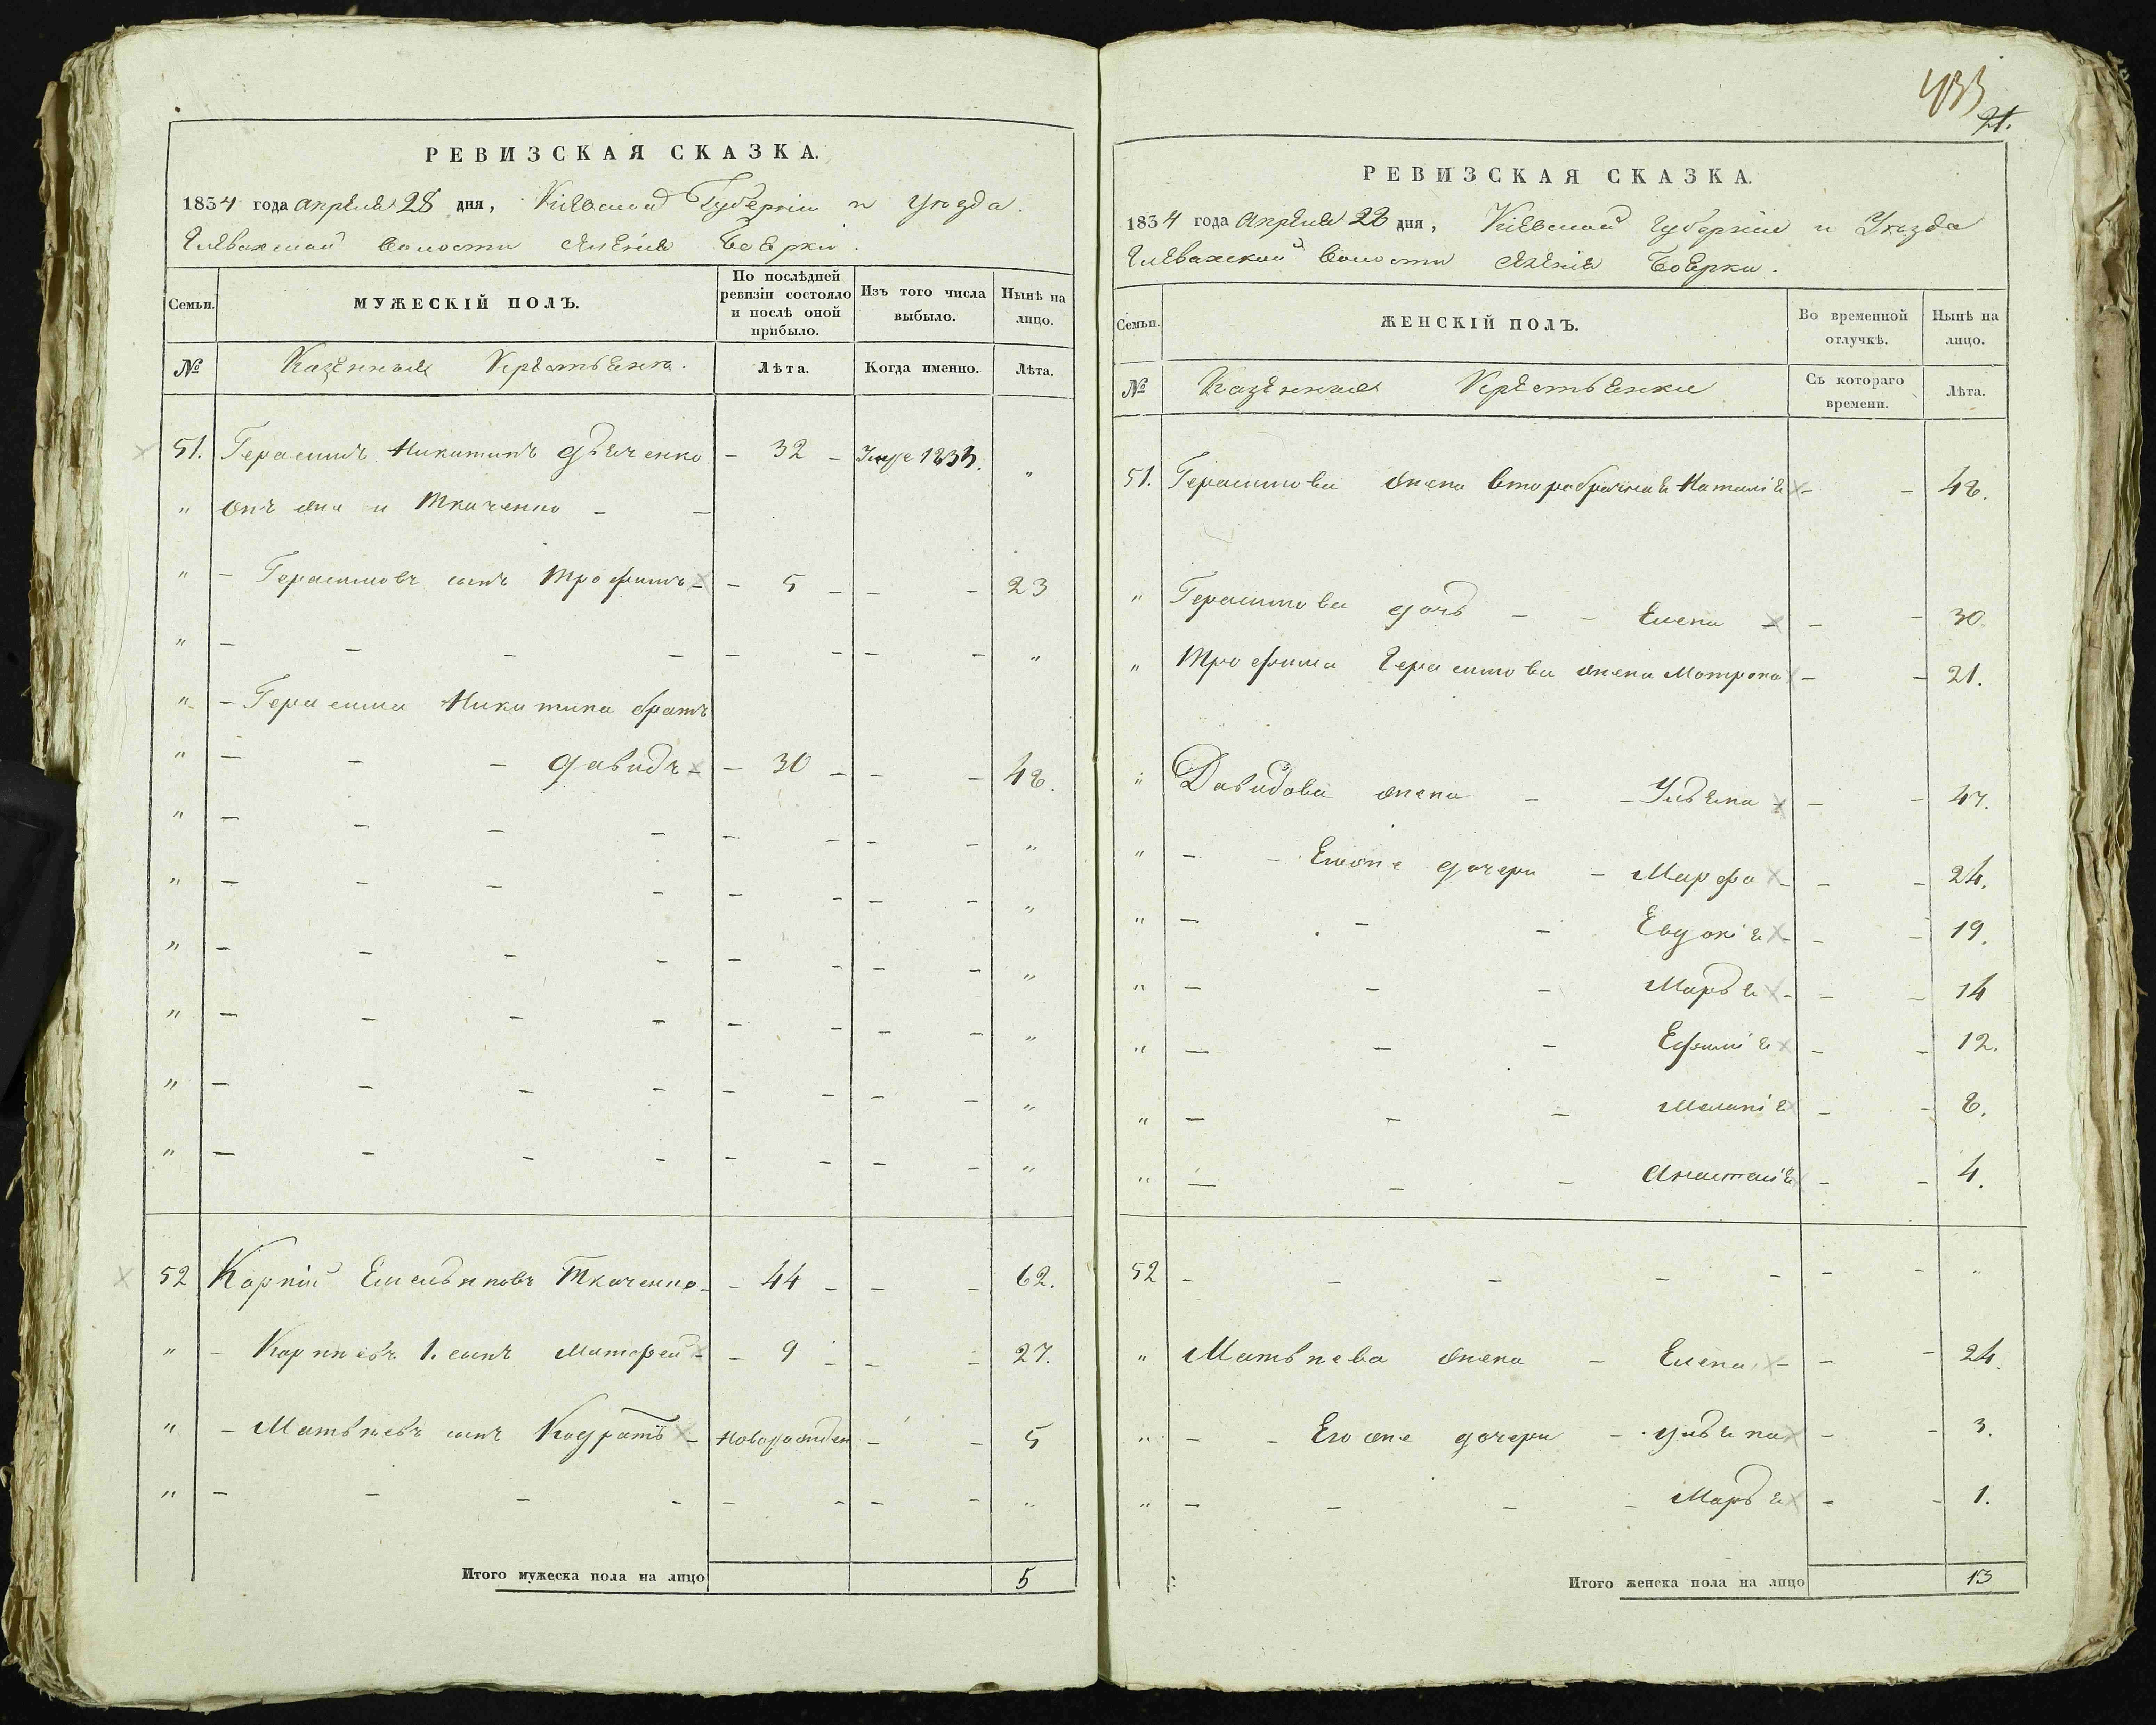 РЕВИЗСКАЯ СКАЗКА.
1834 года апреля 28 дня, Кіевской Губерніи и уѣзда.
Глевахской волости селенія Боерки.
Семьи.
МУЖЕСКІЙ ПОЛЪ.
По послѣдней ревизіи состояло и послѣ оной прибыло.
Изъ того числа выбыло.
Нынѣ на лицо.
№
Казенныя Крестьяне.
Лѣта.
Когда именно.
Лѣта.
51. Герасимъ Никитинъ Дьяченко - 32 - 1833. "
" онъ же и Ткаченко - -
" - Герасимовъ сынъ Трофимъ - - 5 - - - 23
" - - - - - - - - "
" - Герасима Никитина братъ
" - - - Давидъ - - 30 - - - 48.
" - - - - - - - - "
" - - - - - - - - "
" - - - - - - - - "
" - - - - - - - - "
" - - - - - - - - "
" - - - - - - - - "
52 Карпій Емельяновъ Ткаченко - - 44 - - - 62.
" - Карпіевъ 1. сынъ Матфей - - 9 - - - 27.
" - Матвѣевъ сынъ Кодратъ - новорожден - - 5
" - - - - - - - - "
Итого мужеска пола на лицо 5
433
21.
РЕВИЗСКАЯ СКАЗКА.
1834 года Апреля 28 дня, Кіевской Губерніи и Уѣзда
Глевахской волости селенія Боерки.
Семьи.
ЖЕНСКІЙ ПОЛЪ.
Во временной отлучкѣ.
Нынѣ на лицо.
№
Казенныя Крестьянки
Съ котораго времени.
Лѣта.
51. Герасимова жена второбрачная Наталія - - 48.
" Герасимова дочь - - Елена - - - 30
" Трофима Герасимова жена Мотрона - - 21.
" Давидова жена - - Ульяна - - 47.
" - - Егоже дочери - Марфа - - - 24.
" - - - Евдокія - - - 19.
" - - - Марья - - - 14
" - - - Ефимія - - 12.
" - - - Меланія - - 8.
" - - - Анастасія - - 4.
52 - - - - - - - "
" Матвѣева жена - Елена - - - 24.
" - - Егоже дочери - Ульяна - - 3.
" - - - - Марья - - 1.
Итого женска пола на лицо 13